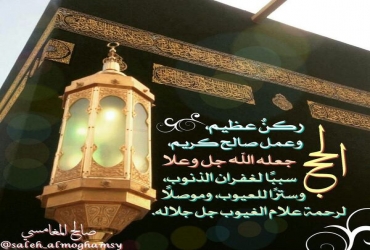 الحج
ركنٌ عظيم،
وعمل صالح كريم،
جعله الله جل وعلا
سببًا لغفران الذنوب،
وسترًا للعيوب، وموصلًا
لرحمة علام الغيوب جل جلاله.
صالح المغامسي
@saleh_almoghamsy